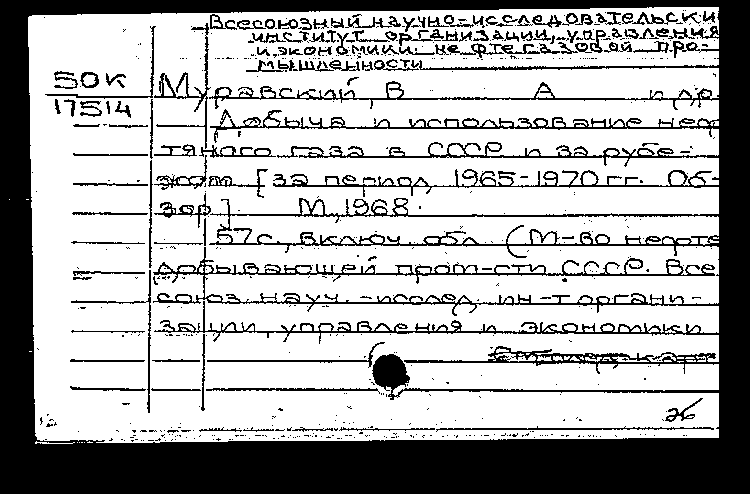 Всесоюзный научно-исследовательски
институт организации, управления
и экономики нефтегазовой про-
мышленности
50К
17514
Муравский, В А и др.
Добыча и использование неф
тяного газа в СССР и за рубе-
жом [за период 1965-1970 гг. Об-
зор] М., 1968.
57 с., включ. обл. (М-во нефте
добывающей пром-сти СССР. Все
союз. науч.-исслед. ин-т органи-
зации, управления и экономики
26